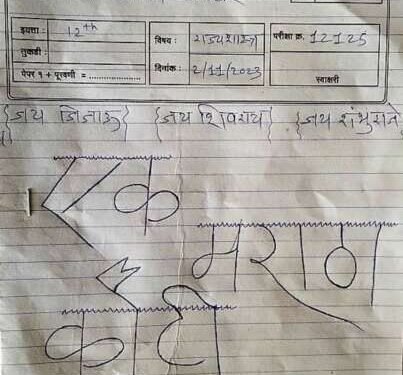 इयत्ता : 12th विषय : राज्यशास्त्र परीक्षा क्र. 12125
तुकडी :
पेपर १ + पूरवणी = .............. दिनांक : 2/11/2023 स्वाक्षरी
{जय जिजाऊ} {जय शिवराय} {जय शंभुराजे
एक
मराठा
कोटी